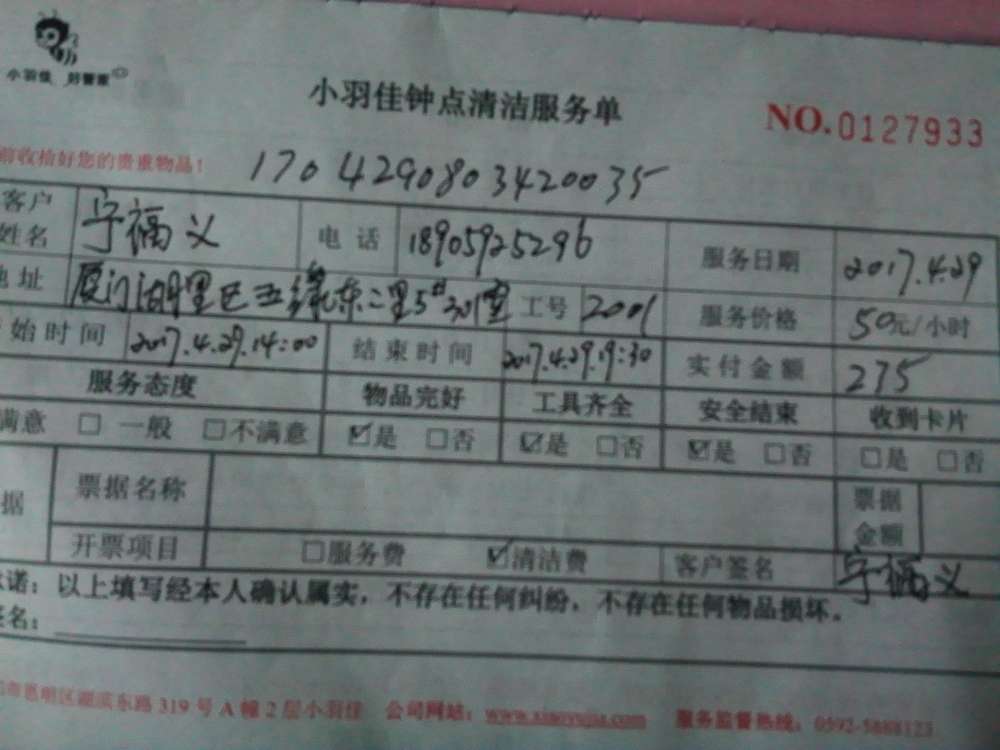 小羽佳 好管家
小羽佳钟点清洁服务单
NO.0127933
前收拾好您的贵重物品！
1704290803420035
客户姓名 宁福义 电话 18905925296 服务日期 2017.4.29
地址 厦门湖里区 东二里5# 301室 工号 2001 服务价格 50元/小时
始时间 2017.4.29.14:00 结束时间 2017.4.29.19:30 实付金额 275
服务态度 物品完好 工具齐全 安全结束 收到卡片
满意 □ 一般 □不满意 ☑是 □否 ☑是 □否 ☑是 □否 □是 □否
据 票据名称 票据金额
开票项目 □服务费 ☑清洁费 客户签名 宁福义
诺：以上填写经本人确认属实，不存在任何纠纷，不存在任何物品损坏。
签名：
思明区湖滨东路 319 号 A 幢 2 层小羽佳 公司网站：www.xiaoyujia.com 服务监督热线：